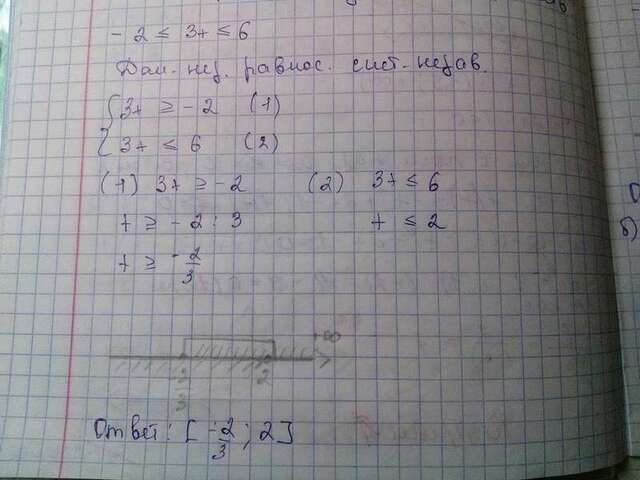 - 2 ≤ 3t ≤ 6
Дан. нер. равнос. сист. нерав.
{ 3t ≥ -2 (1)
{ 3t ≤ 6 (2)
(1) 3t ≥ -2 (2) 3t ≤ 6
t ≥ -2 : 3 t ≤ 2
t ≥ -2/3
+∞
-2/3 2
Ответ: [-2/3; 2]
б)